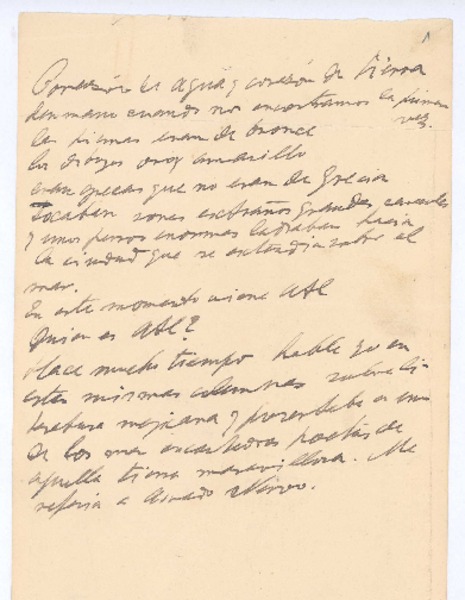 1
Corazón de agua y corazón de tierra
cuando nos encontramos la primera
vez.
las piernas eran de bronce
los ojos oro amarillo
eran que no eran de Grecia
tocaban sones extraños grandes caracoles
y unos perros enormes ladraban hacia
la ciudad que se extendia sobre el
mar.
En este momento viene Atl
Quien es Atl?
Hace mucho tiempo hable yo en
estas mismas columnas sobre li-
teratura mejicana y presentaba a uno
de los mas poetas de
aquella tierra maravillosa. Me
referia a Amado Nervo.